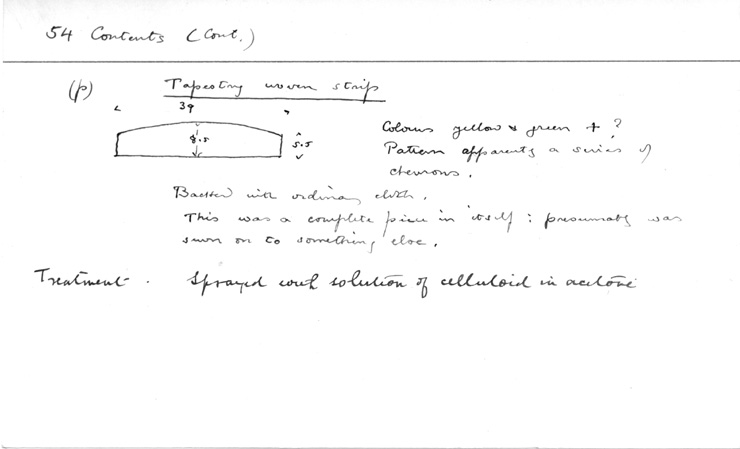 54 Contents (Cont.)
(p) Tapestry woven strip
39
8.5
5.5
Colours yellow & green + ?
Pattern apparently a series of
chevrons.
Backed with ordinary cloth.
This was a complete piece in itself : presumably was
sewn on to something else.
Treatment. Sprayed with solution of celluloid in acetone